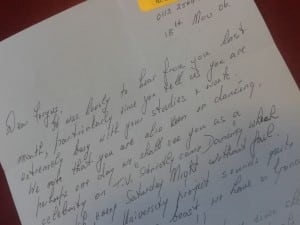 0113 2564
18th Nov 06
Dear Fergus,
It was lovely to hear from you last
month, particularly since you tell us you are
extremely busy with your studies & work.
We note that you are also keen on dancing,
perhaps one day we shall see you as a
celebrity on T.V. Strictly Come Dancing which
every Saturday Night without fail.
University project sounds quite
boast we have a